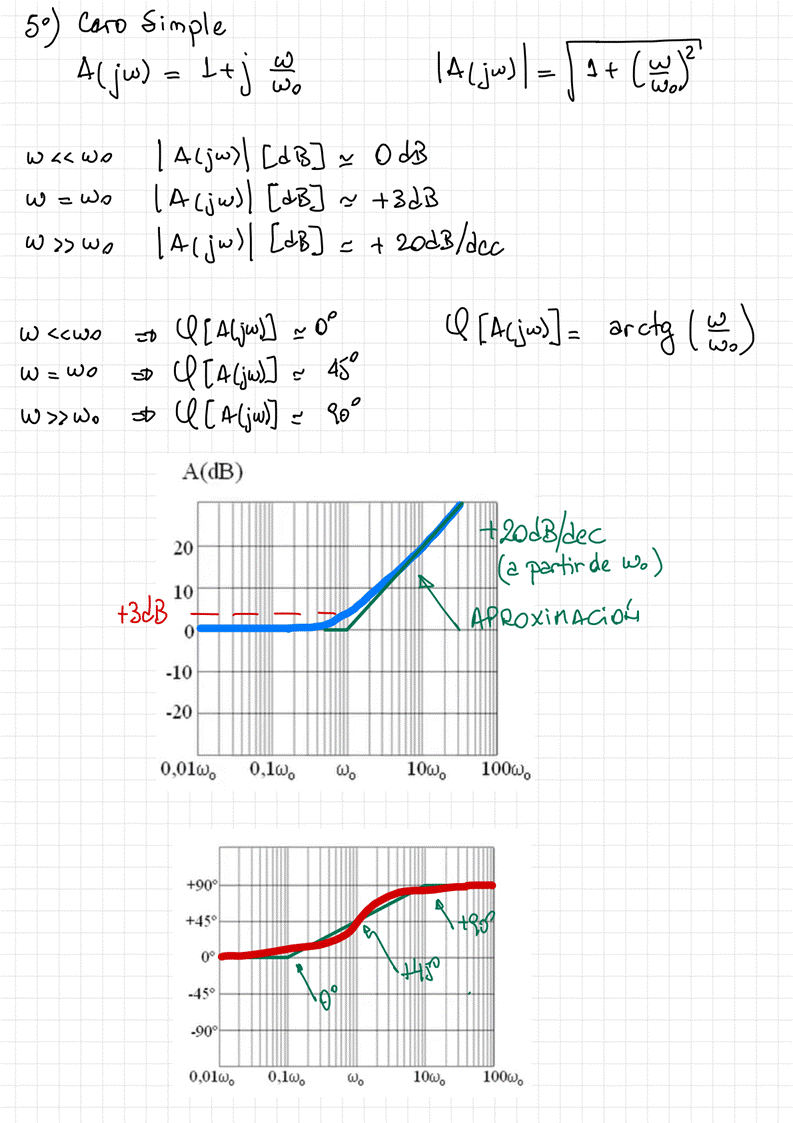 5º) Cero Simple
A(jω) = 1+j ω/ω₀    |A(jω)| = √(1 + (ω/ω₀)²)
ω << ω₀ |A(jω)| [dB] ≃ 0 dB
ω = ω₀ |A(jω)| [dB] ≃ +3dB
ω >> ω₀ |A(jω)| [dB] ≃ + 20dB/dec
ω << ω₀ ⇒ φ[A(jω)] ≃ 0º    φ[A(jω)] = arctg (ω/ω₀)
ω = ω₀ ⇒ φ[A(jω)] ≃ 45º
ω >> ω₀ ⇒ φ[A(jω)] ≃ 90º
A(dB)
+20dB/dec
(a partir de ω₀)
20
10
+3dB
APROXIMACIÓN
0
-10
-20
0,01ω₀ 0,1ω₀ ω₀ 10ω₀ 100ω₀
+90°
+45°
+90º
0°
+45º
-45°
0º
-90°
0,01ω₀ 0,1ω₀ ω₀ 10ω₀ 100ω₀